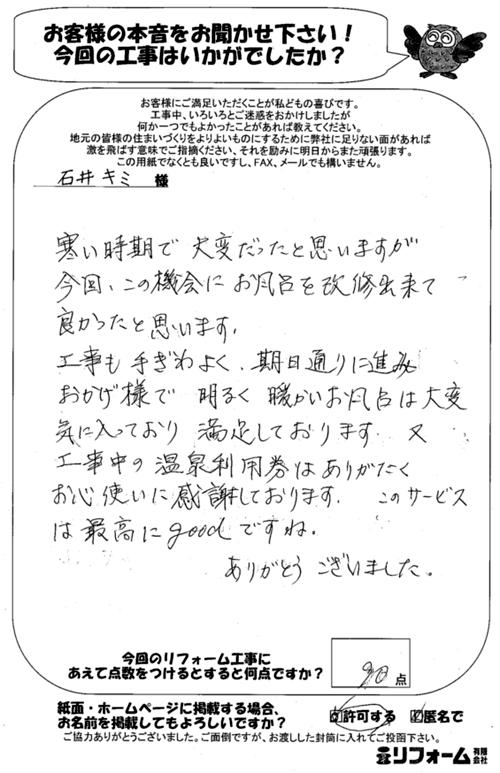 お客様の本音をお聞かせ下さい！
今回の工事はいかがでしたか？
お客様にご満足いただくことが私どもの喜びです。
工事中、いろいろとご迷惑をおかけしましたが
何か一つでもよかったことがあれば教えてください。
地元の皆様の住まいづくりをよりよいものにするために弊社に足りない面があれば
激を飛ばす意味でご指摘ください、それを励みに明日からまた頑張ります。
この用紙でなくとも良いですし、FAX、メールでも構いません。
石井 キミ 様
寒い時期で 大変だったと思いますが
今回、この機会に お風呂を改修出来て
良かったと思います。
工事も 手ぎわよく、期日通りに進み
おかげ様で 明るく 暖かいお風呂は大変
気に入っており 満足しております 又
工事中の 温泉利用券はありがたく
お心使いに感謝しております. このサービス
は 最高に good ですね。
ありがとう ございました。
今回のリフォーム工事に
あえて点数をつけるとすると何点ですか？ 90 点
紙面・ホームページに掲載する場合、
お名前を掲載してもよろしいですか？ 許可する 匿名で
ご協力ありがとうございました。ご面倒ですが、お渡しした封筒に入れてご投函下さい。
リフォーム 有限会社